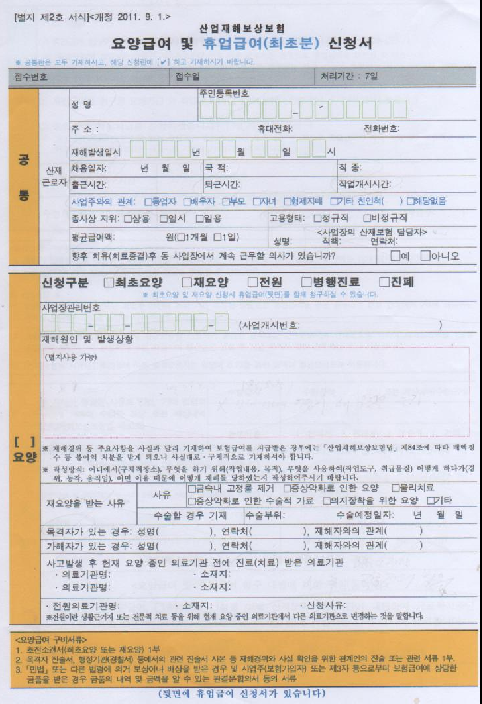 [별지 제2호 서식]<개정 2011. 9. 1.>
산업재해보상보험
요양급여 및 휴업급여(최초분) 신청서
※ 공통란은 모두 기재하시고, 해당 신청란에 [✓] 하고 기재하시기 바랍니다.
접수번호 접수일 처리기간 : 7일
공통
산재근로자
성 명 주민등록번호
주 소 : 휴대전화: 전화번호:
재해발생일시 년 월 일 시
채용일자: 년 월 일 국 적: 직 종:
출근시간: 퇴근시간: 작업개시시간:
사업주와의 관계: □동업자 □배우자 □부모 □자녀 □형제자매 □기타 친인척( ) □해당없음
종사상 지위: □상용 □일시 □일용 고용형태: □정규직 □비정규직
평균급여액: 원(□1개월 □1일) <사업장의 산재보험 담당자>
성명: 직책: 연락처:
향후 치유(치료종결)후 동 사업장에서 계속 근무할 의사가 있습니까? □예 □아니오
[ ] 요양
신청구분 □최초요양 □재요양 □전원 □병행진료 □진폐
※ 최초요양 및 재요양 신청에 휴업급여(뒷면)를 함께 청구하실 수 있습니다.
사업장관리번호
(사업개시번호: )
재해원인 및 발생상황
(별지사용 가능)
※ 재해경위 등 주요사항을 사실과 달리 기재하여 보험급여를 지급받은 경우에는 「산업재해보상보험법」 제84조에 따라 배액징수 등 불이익 처분을 받게 되오니 사실대로 · 구체적으로 기재하셔야 합니다.
※ 작성방식: 어디에서(구체적장소), 무엇을 하기 위해(작업내용, 목적), 무엇을 사용하여(작업도구, 취급물질) 어떻게 하다가(경위, 동작, 움직임), 어떤 이유 때문에 어떻게 재해를 당하였는지 작성하여주시기 바랍니다.
재요양을 받는 사유
사유 □금속내 고정물 제거 □증상악화로 인한 요양 □물리치료
□증상악화로 인한 수술적 가료 □의지장착을 위한 요양 □기타
수술할 경우 기재 수술부위: 수술예정일자: 년 월 일
목격자가 있는 경우: 성명( ), 연락처( ), 재해자와의 관계( )
가해자가 있는 경우: 성명( ), 연락처( ), 재해자와의 관계( )
사고발생 후 현재 요양 중인 의료기관 전에 진료(치료) 받은 의료기관
· 의료기관명: · 소재지:
· 의료기관명: · 소재지:
· 전원의료기관명: · 소재지: · 신청사유:
※전원이란 생활근거지 또는 전문적 치료 등을 위해 현재 요양 중인 의료기관에서 다른 의료기관으로 변경하는 것을 말합니다.
<요양급여 구비서류>
1. 초진소견서(최초요양 또는 재요양) 1부
2. 목격자 진술서, 행정기관(경찰서) 등에서의 관련 진술서 사본 등 재해경위와 사실 확인을 위한 관계인의 진술 또는 관련 서류 1부.
3. 「민법」 또는 다른 법령에 의거 보상이나 배상을 받은 경우 및 사업주(보험가입자) 또는 제3자 등으로부터 보험급여에 상당한 금품을 받은 경우 금품의 내역 및 금액을 알 수 있는 판결문·합의서 등의 서류
(뒷면에 휴업급여 신청서가 있습니다)